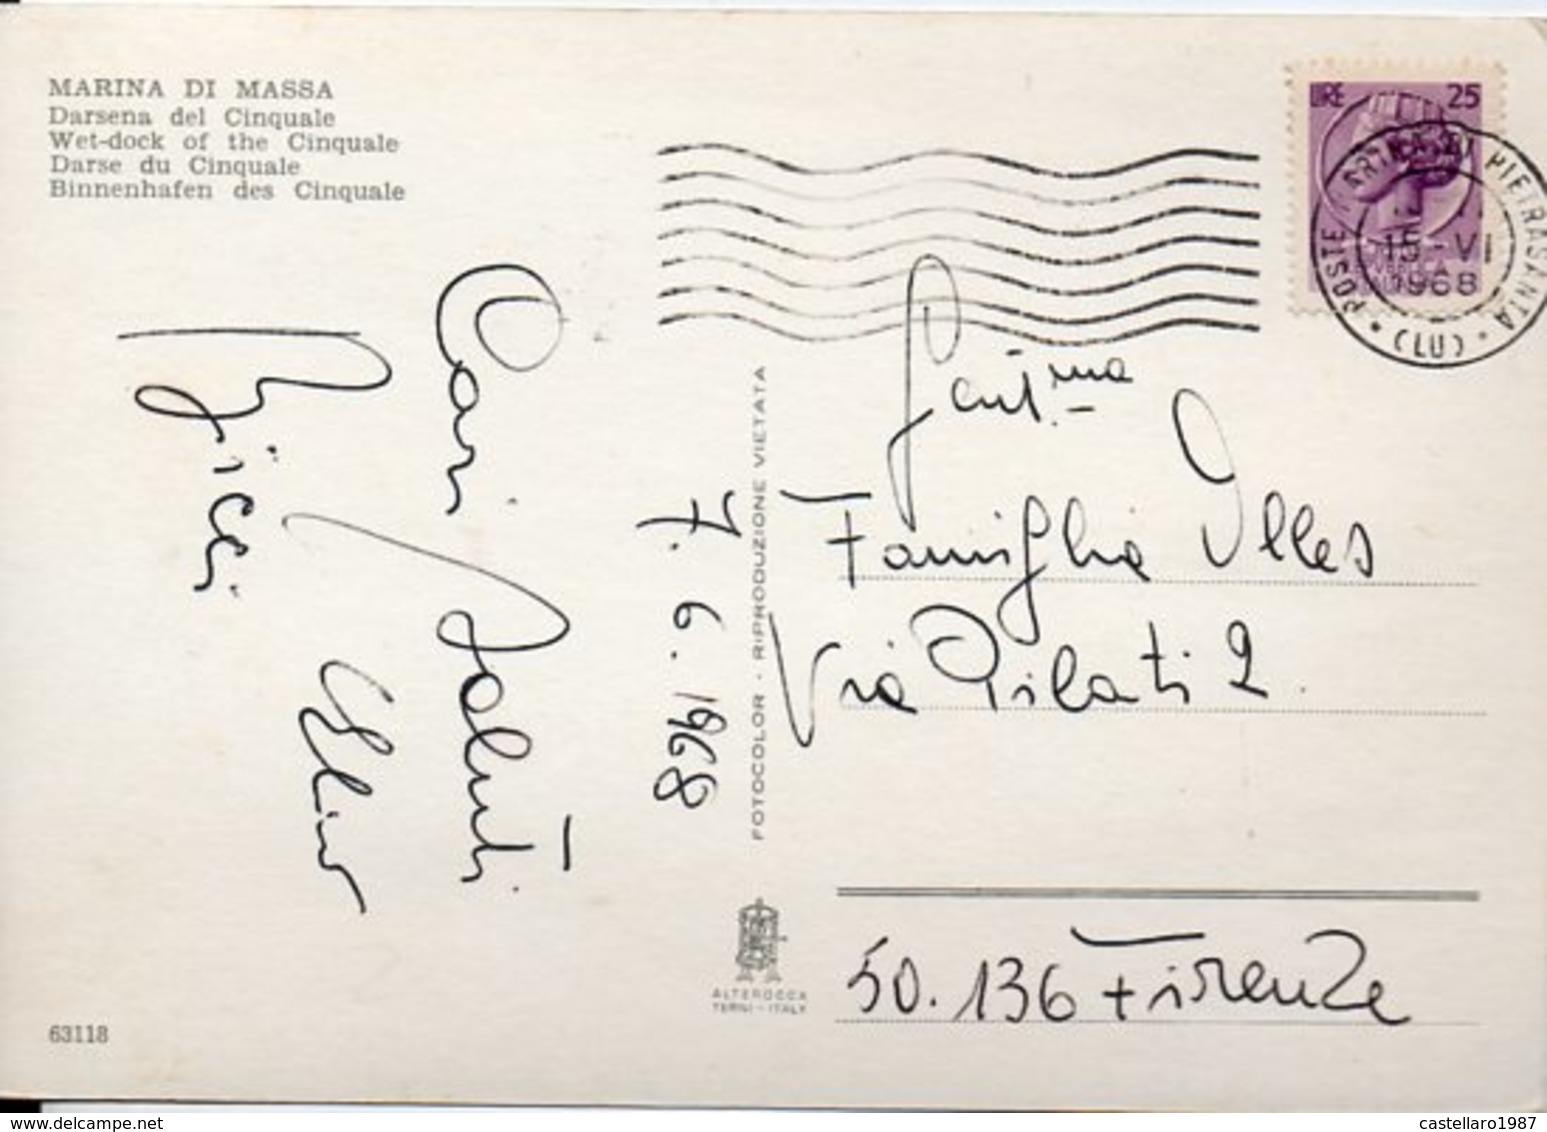 MARINA DI MASSA
Darsena del Cinquale
Wet-dock of the Cinquale
Darse du Cinquale
Binnenhafen des Cinquale
LIRE 25
POSTE PIETRASANTA (LU)
15-VI
1968
Cari Saluti
7.6.1968
FOTOCOLOR - RIPRODUZIONE VIETATA
Gent.ma
Famiglia
Via Pilati 2.
50.136 Firenze
ALTEROCCA
TERNI-ITALY
63118
castellaro1987